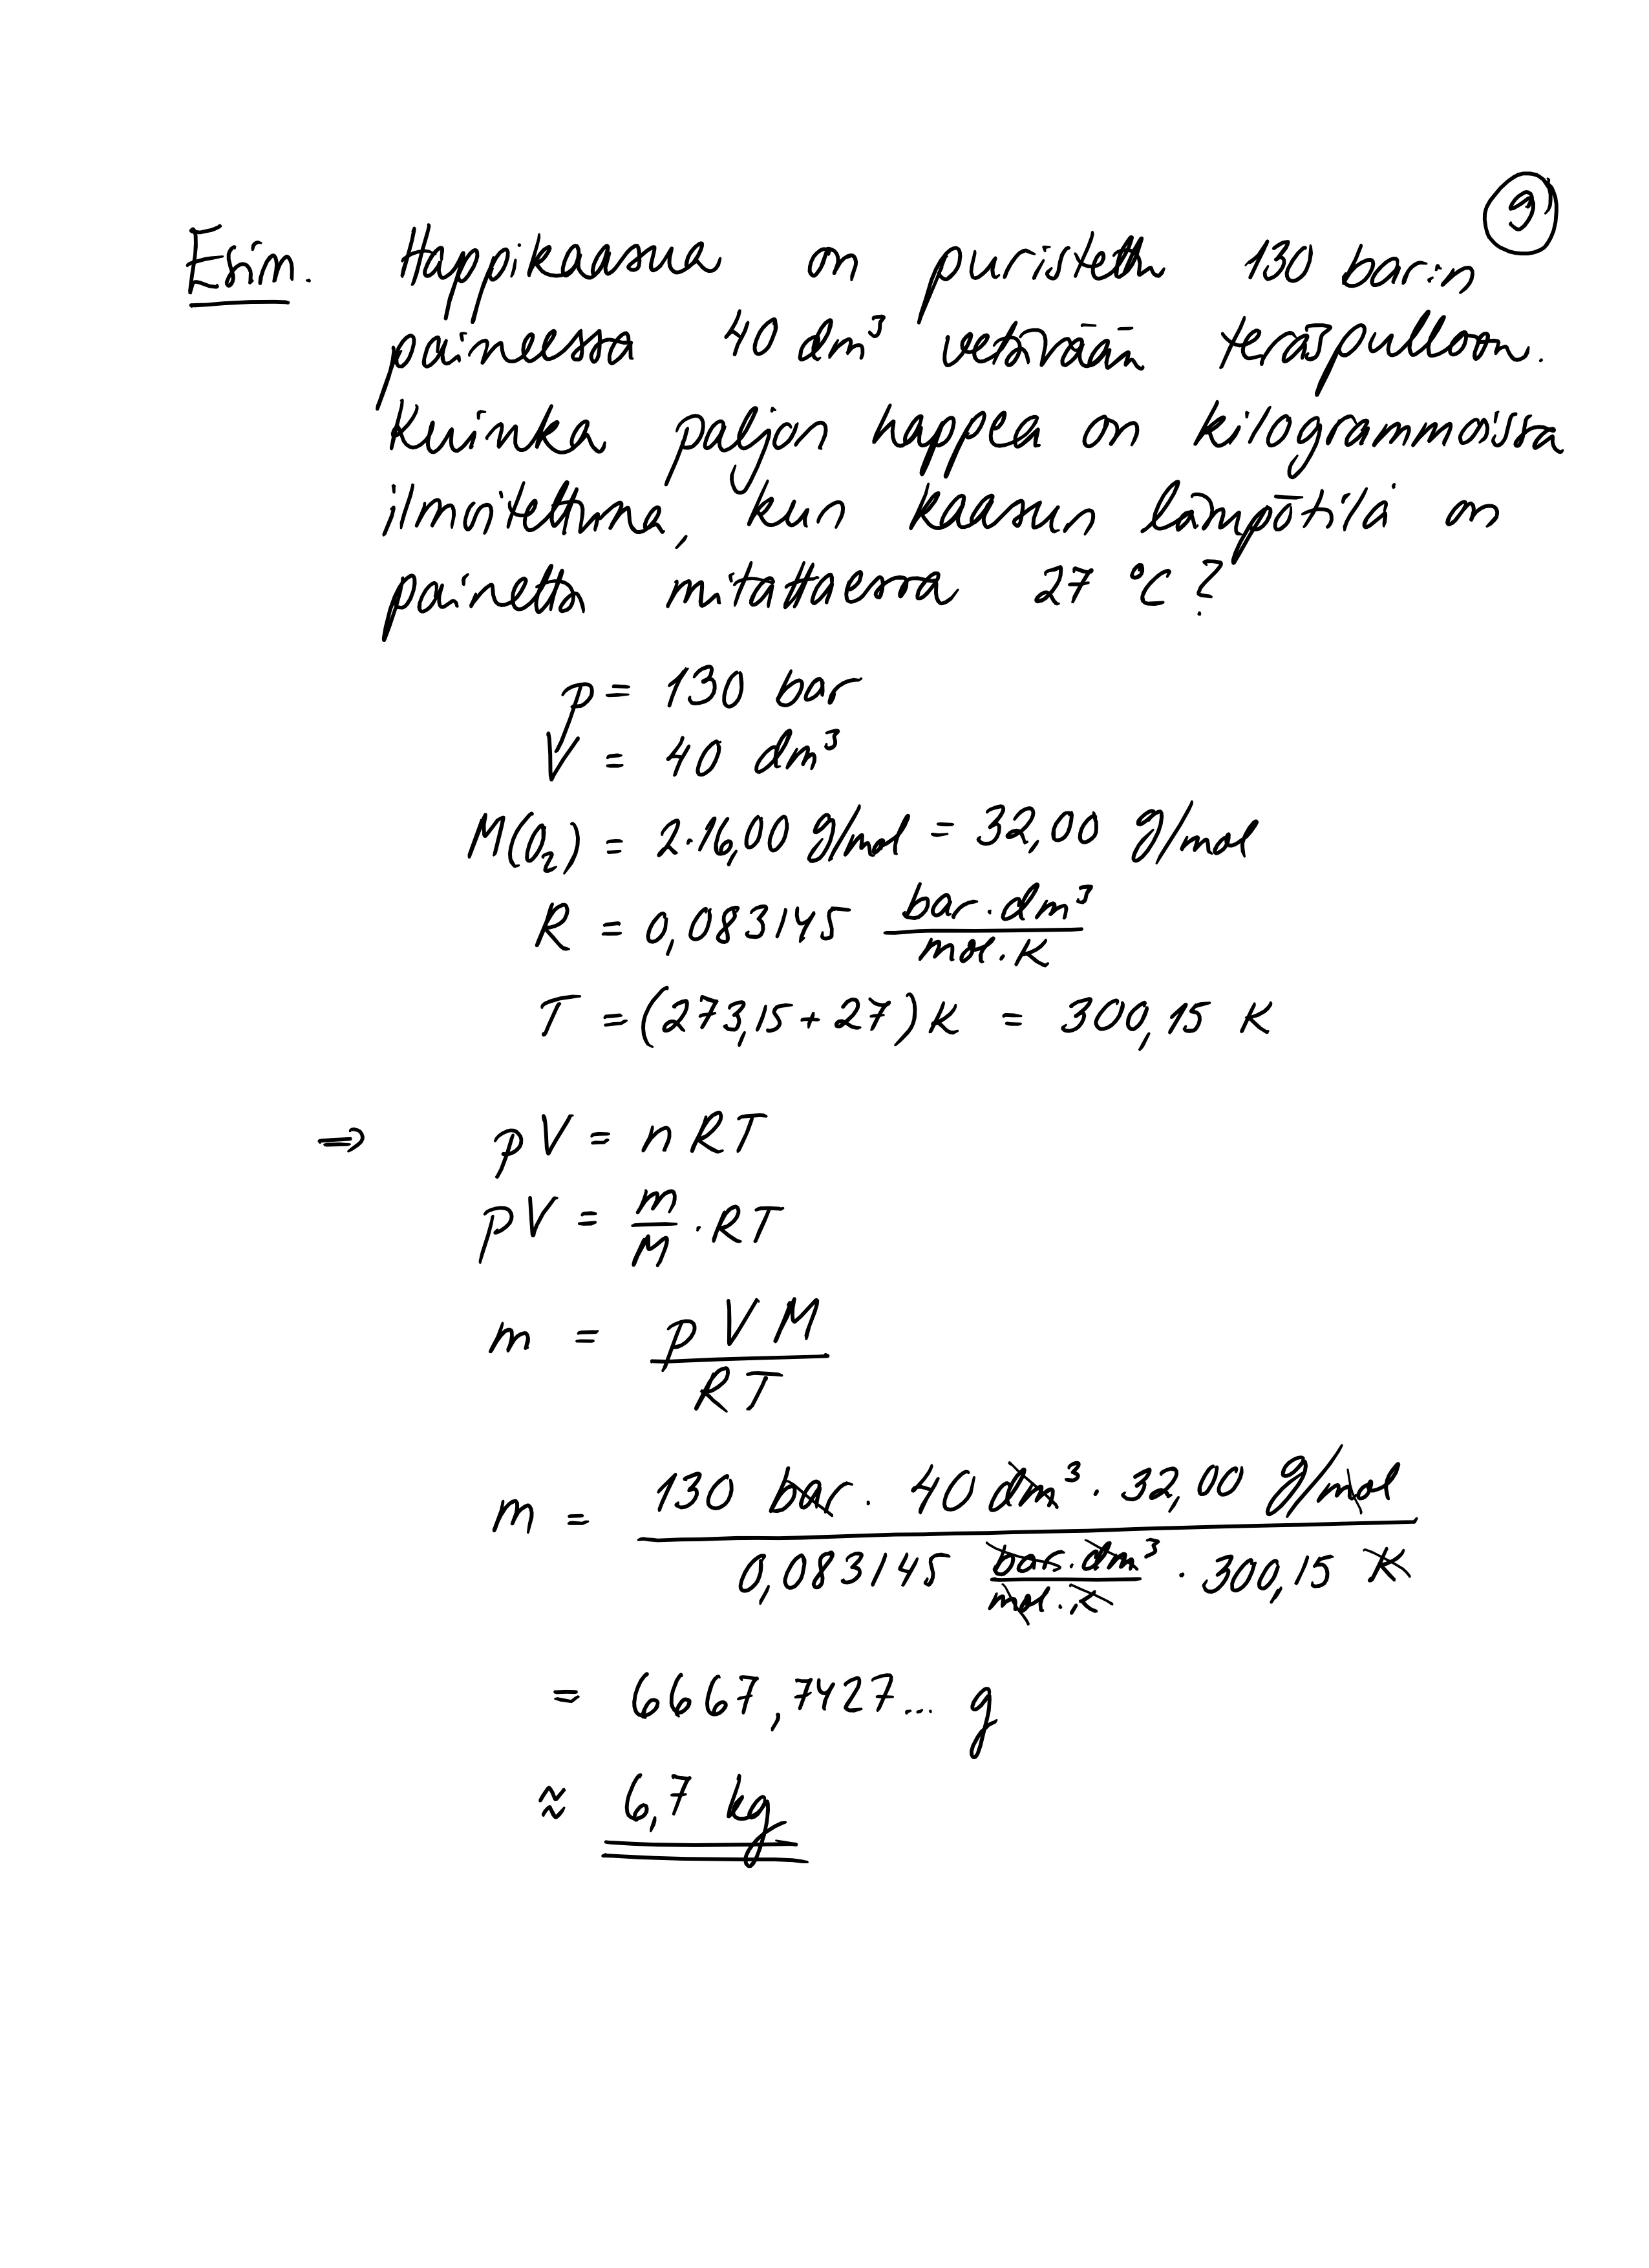 9)
Esim. Happikaasua on puristettu 130 bar:n
paineessa 40 dm³ vetävään teräspulloon.
Kuinka paljon happea on kilogrammoissa
ilmoitettuna, kun kaasun lämpötila on
painetta mitattaessa 27 °C?
p = 130 bar
V = 40 dm³
M(O₂) = 2·16,00 g/mol = 32,00 g/mol
R = 0,083145 (bar·dm³)/(mol·K)
T = (273,15 + 27) K = 300,15 K
⇒ pV = nRT
pV = m/M · RT
m = pVM/RT
m = (130 bar · 40 dm³ · 32,00 g/mol)/(0,083145 (bar·dm³)/(mol·K) · 300,15 K)
= 6667,7427... g
≈ 6,7 kg